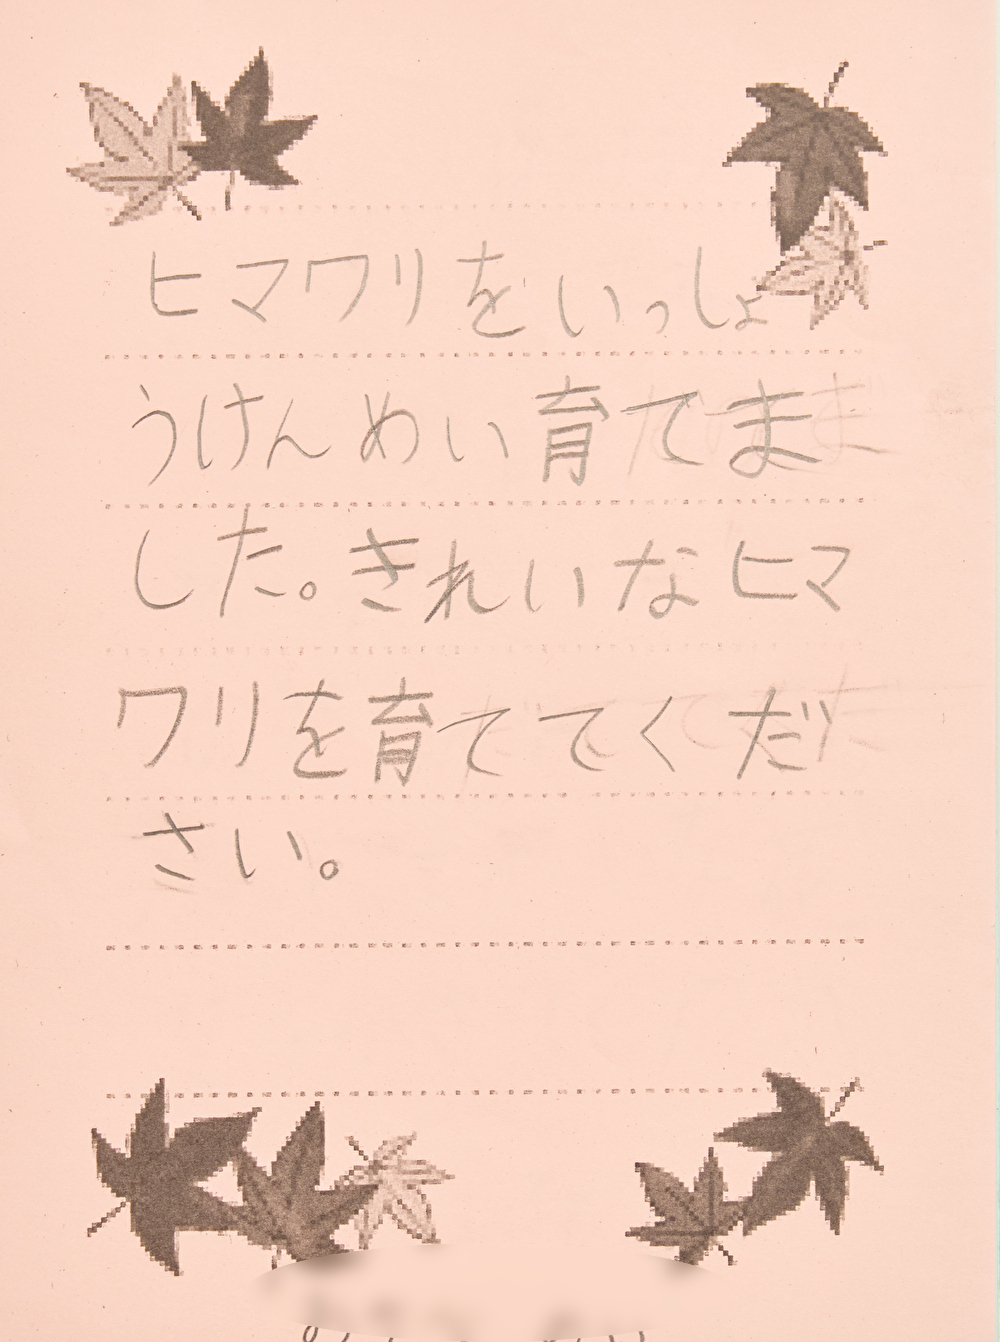 ヒマワリをいっしょ
うけんめい育てま
した。きれいなヒマ
ワリを育ててくだ
さい。